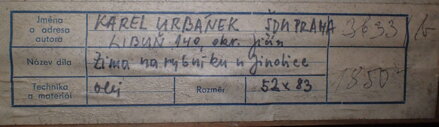 Jméno a adresa autora KAREL URBÁNEK ŠDM PRAHA 3633/6
LIBUŇ 140, okr. Jičín
Název díla Zima na rybníku u Jinolice 1850
Technika a materiál olej Rozměr 52 x 83